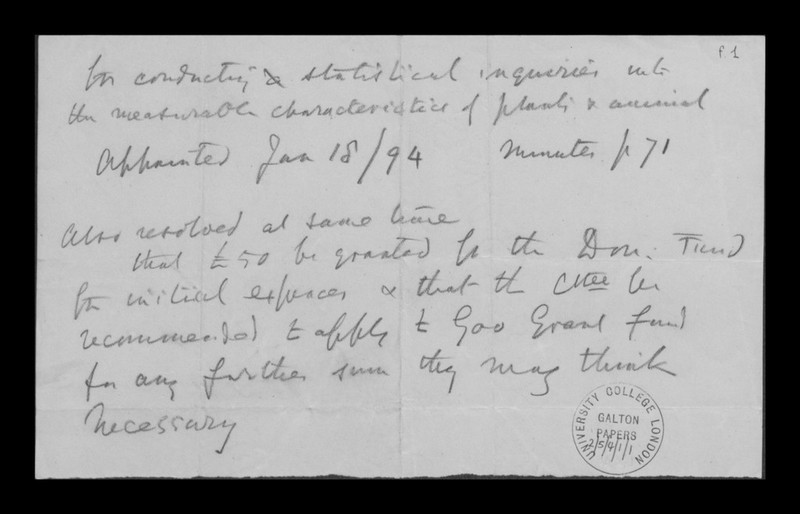 p. 1
for conducting statistical inquiries into
the measurable characteristics of plants & animal
Appointed Jan 18/94 Minutes p 71
Also resolved at same time
that £50 be granted fr the Don. Fund
for initial expences & that the Cttee be
recommended to apply to Gov Grant Fund
for any further sum they may think
necessary
UNIVERSITY COLLEGE LONDON
GALTON
PAPERS
2/5/4/1/1